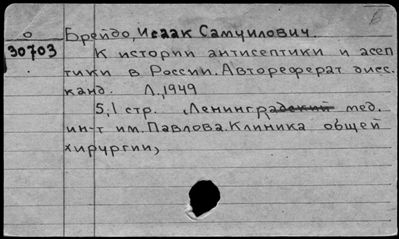 Б
О Брейдо, Исаак Самуилович.
30703 К истории антисептики и асеп
тики в России. Автореферат дисс.
канд. Л., 1949
5,1 стр. Ленинградский мед.
ин-т им. Павлова. Клиника общей
хирургии,